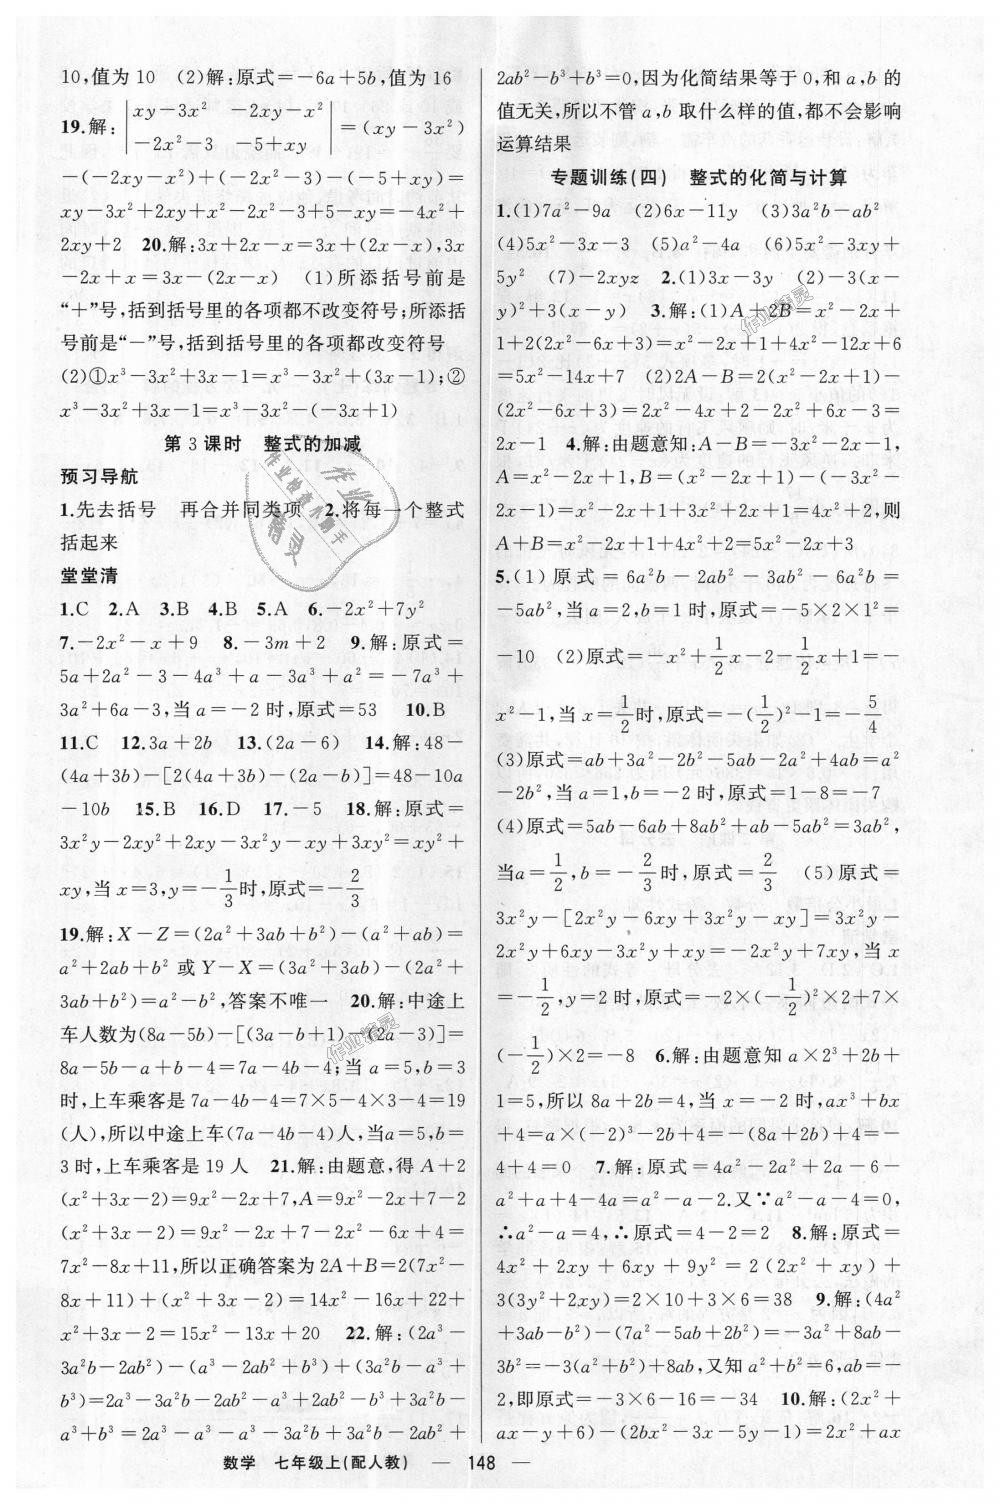 10,值为 10　(2)解:原式=−6a+5b,值为 16
19.解: | xy−3x²　−2xy−x² |
| −2x²−3　−5+xy | =(xy−3x²)
−(−2xy−x²)+(−2x²−3)−(−5+xy)=
xy−3x²+2xy+x²−2x²−3+5−xy=−4x²+
2xy+2　20.解:3x+2x−x=3x+(2x−x),3x
−2x+x=3x−(2x−x)　(1)所添括号前是
“+”号,括到括号里的各项都不改变符号;所添括
号前是“−”号,括到括号里的各项都改变符号
(2)①x³−3x²+3x−1=x³−3x²+(3x−1);②
x³−3x²+3x−1=x³−3x²−(−3x+1)
第 3 课时　整式的加减
预习导航
1.先去括号　再合并同类项　2.将每一个整式
括起来
堂堂清
1.C　2.A　3.B　4.B　5.A　6.−2x²+7y²
7.−2x²−x+9　8.−3m+2　9.解:原式=
5a+2a²−3−4a³+a−3a³+a²=−7a³+
3a²+6a−3,当 a=−2 时,原式=53　10.B
11.C　12.3a+2b　13.(2a−6)　14.解:48−
(4a+3b)−[2(4a+3b)−(2a−b)]=48−10a
−10b　15.B　16.D　17.−5　18.解:原式=
3x²y−2xy²+2xy−3x²y−xy+3xy²=xy²+
xy,当 x=3,y=−1/3时,原式=−2/3
19.解:X−Z=(2a²+3ab+b²)−(a²+ab)=
a²+2ab+b² 或 Y−X=(3a²+3ab)−(2a²+
3ab+b²)=a²−b²,答案不唯一　20.解:中途上
车人数为(8a−5b)−[(3a−b+1)−(2a−3)]=
8a−5b−a+b−4=7a−4b−4;当 a=5,b=3
时,上车乘客是 7a−4b−4=7×5−4×3−4=19
(人),所以中途上车(7a−4b−4)人,当a=5,b=
3 时,上车乘客是 19 人　21.解:由题意,得 A+2
(x²+3x−2)=9x²−2x+7,A=9x²−2x+7−2
(x²+3x−2)=9x²−2x+7−2x²−6x+4=
7x²−8x+11,所以正确答案为 2A+B=2(7x²−
8x+11)+(x²+3x−2)=14x²−16x+22+
x²+3x−2=15x²−13x+20　22.解:(2a³−
3a²b−2ab²)−(a³−2ab²+b³)+(3a²b−a³+
b³)=2a³−3a²b−2ab²−a³+2ab²−b³+3a²b−
a³+b³=2a³−a³−a³−3a²b+3a²b−2ab²+
2ab²−b³+b³=0,因为化简结果等于 0,和 a,b 的
值无关,所以不管 a,b 取什么样的值,都不会影响
运算结果
专题训练(四)　整式的化简与计算
1.(1)7a²−9a　(2)6x−11y　(3)3a²b−ab²
(4)5x²−3x−3　(5)a²−4a　(6)5x²−3xy+
5y²　(7)−2xyz　2.(1)3x−3y　(2)−3(x−
y)²+3(x−y)　3.解:(1)A+2B=x²−2x+
1+2(2x²−6x+3)=x²−2x+1+4x²−12x+6
=5x²−14x+7　(2)2A−B=2(x²−2x+1)−
(2x²−6x+3)=2x²−4x+2−2x²+6x−3=
2x−1　4.解:由题意知:A−B=−3x²−2x−1,
A=x²−2x+1,B=(x²−2x+1)−(−3x²−
2x−1)=x²−2x+1+3x²+2x+1=4x²+2,则
A+B=x²−2x+1+4x²+2=5x²−2x+3
5.(1)原式=6a²b−2ab²−3ab²−6a²b=
−5ab²,当 a=2,b=1 时,原式=−5×2×1²=
−10　(2)原式=−x²+1/2x−2−1/2x+1=−
x²−1,当 x=1/2时,原式=−(1/2)²−1=−5/4
(3)原式=ab+3a²−2b²−5ab−2a²+4ab=a²
−2b²,当 a=1,b=−2 时,原式=1−8=−7
(4)原式=5ab−6ab+8ab²+ab−5ab²=3ab²,
当a=1/2,b=−2/3时,原式=2/3　(5)原式=
3x²y−[2x²y−6xy+3x²y−xy]=3x²y−
2x²y+6xy−3x²y+xy=−2x²y+7xy,当 x
=−1/2,y=2 时,原式=−2×(−1/2)²×2+7×
(−1/2)×2=−8　6.解:由题意知 a×2³+2b+
1=5,所以 8a+2b=4,当 x=−2 时,ax³+bx
+4=a×(−2)³−2b+4=−(8a+2b)+4=−
4+4=0　7.解:原式=4a²−2a²+2a−6−
a²+a+4−4a=a²−a−2.又∵a²−a−4=0,
∴a²−a=4,∴原式=4−2=2　8.解:原式=
4x²+2xy+6xy+9y²=2(2x²+xy)+
3(3y²+2xy)=2×10+3×6=38　9.解:(4a²
+3ab−b²)−(7a²−5ab+2b²)=−3a²+8ab−
3b²=−3(a²+b²)+8ab,又知 a²+b²=6,ab=−
2,即原式=−3×6−16=−34　10.解:(2x²+
ax−y+6)−(2bx²−3x−5y−1)=2x²+ax
数学　七年级上(配人教)　— 148 —